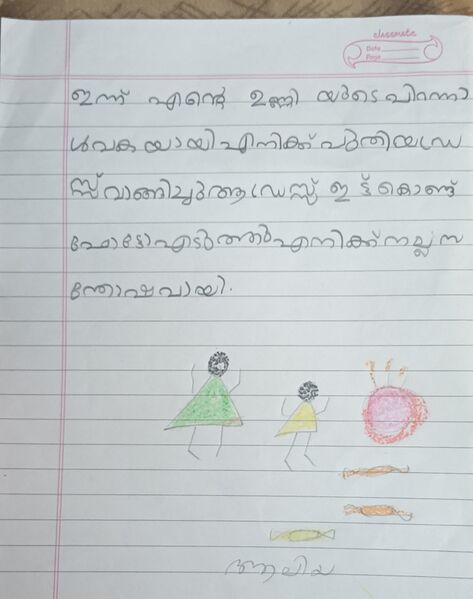 classmate
Date
Page
ഇന്ന് എന്റെ ഉണ്ണി യുടെ പിറന്നാ
ൾവക യായി എനിക്ക് പുതിയ ഡ്രേ
സ്സ് വാങ്ങിച്ചു ആ ഡ്രേസ്സ് ഇ ട്ട് കൊണ്ട്
ഫോട്ടോ എടുത്തു എനിക്ക് നല്ല സ
ന്തോഷ വായി.
ആലിയ